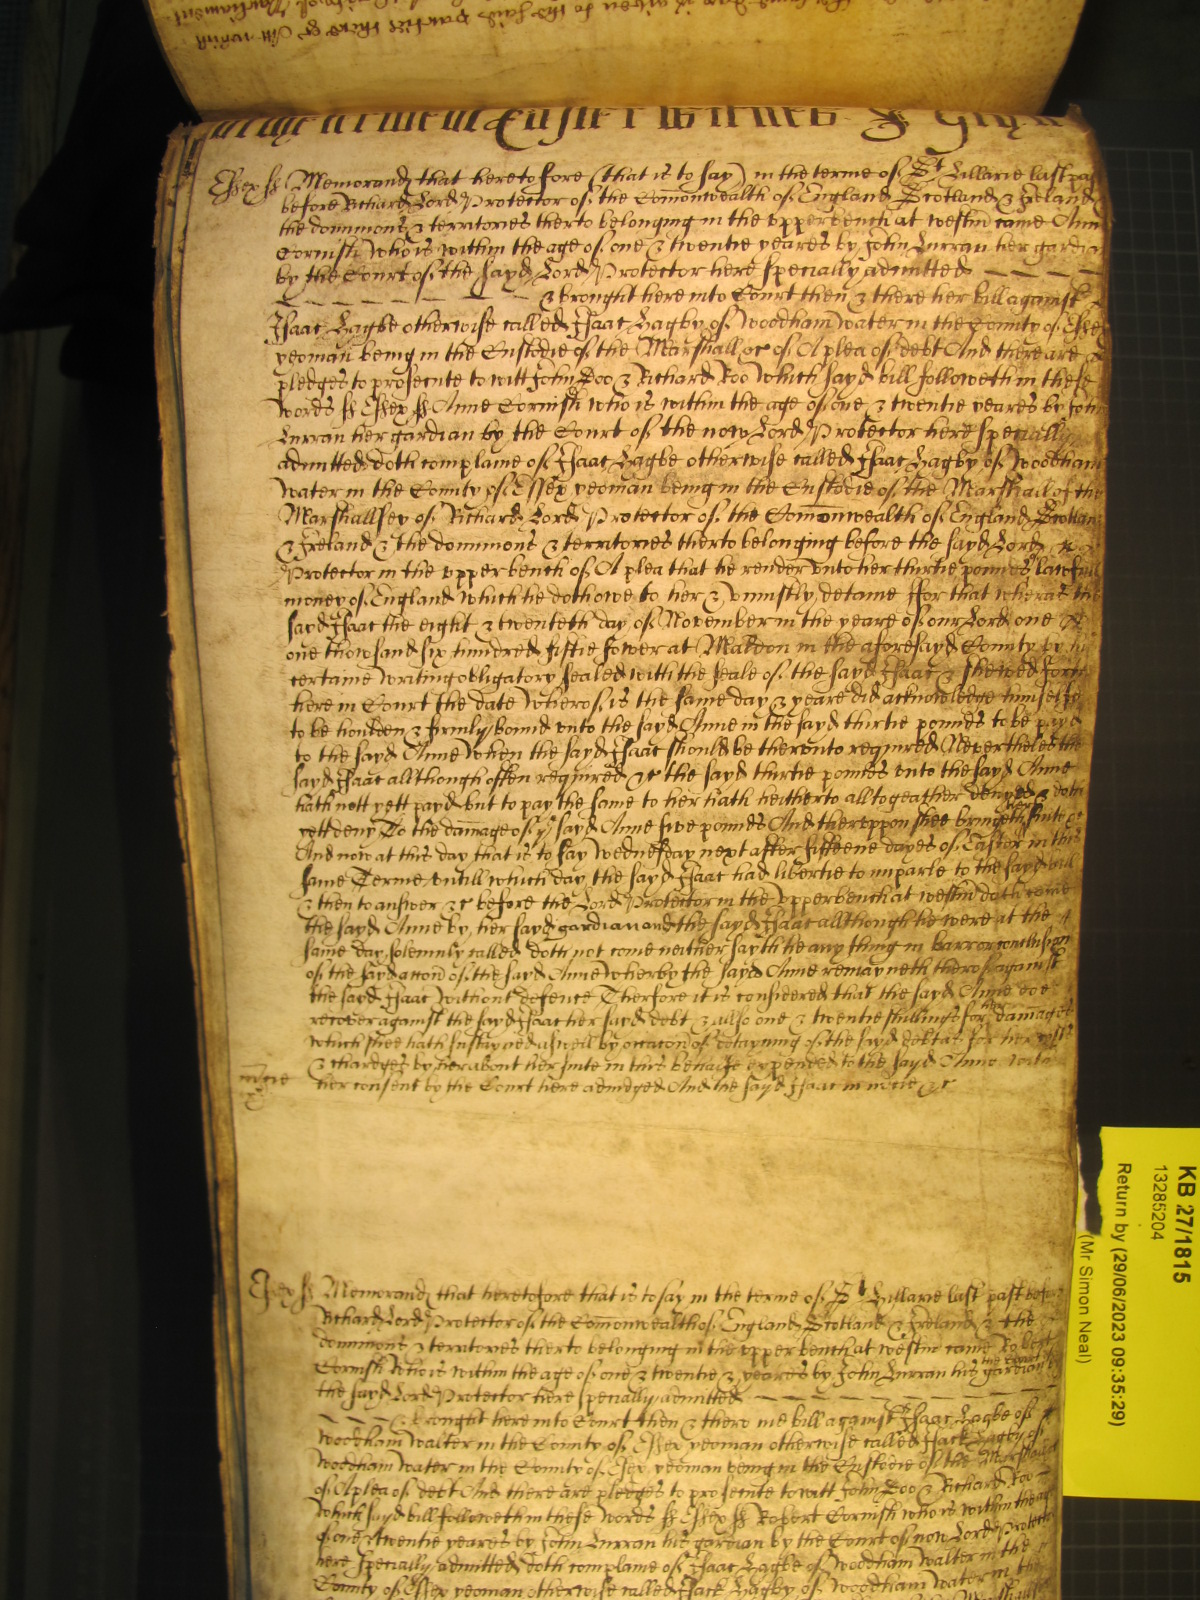 Essex ss Memorand that heretofore (that is to say) in the terme of St Hillarie last past
before Richard Lord Protector of the Comonwealth of England Scotland & Ireland &
the dominions & territories therto belonging in the upper bench at westm came Anne
Cornish who is within the age of one & twentie yeares by John Curran her gardian
by the Court of the sayd Lord Protector here specially admitted
& brought here into Court then & there her bill against
Isaac Hagbe otherwise called Isaac Hagby of Woodham Water in the County of Essex
yeoman being in the Custodie of the Marshall &c of A plea of debt And there are
pledges to prosecute to witt John Doo & Richard Roo Which sayd bill followeth in these
words ss Essex ss Anne Cornish who is within the age of one & twentie yeares by John
Curran her gardian by the Court of the now Lord Protector here specially
admitted doth complaine of Isaac Hagbe otherwise called Isaac Hagby of Woodham
Water in the County of Essex yeoman being in the Custodie of the Marshall of the
Marshallsey of Richard Lord Protector of the Comonwealth of England Scotland
& Ireland & the dominions & territories therto belonging before the sayd Lord
Protector in the upper bench of A plea that he render unto her thirtie pounds lawfull
money of England which he doth owe to her & uniustly detaine ffor that wheras the
sayd Isaac the eight & twenteth day of November in the yeare of our Lord one
one thowsand six hundred fiftie fower at Maldon in the aforesayd County by his
certaine writing obligatory sealed with the seale of the sayd Isaac & shewed forth
here in Court the date wherof is the same day & yeare did acknowledge himselfe
to be houlden & firmly bound unto the sayd Anne in the sayd thirtie pounds to be payd
to the sayd Anne when the sayd Isaac should be therunto required Neverthelesse the
sayd Isaac allthough often required &c the sayd thirtie poundes unto the sayd Anne
hath nott yett payd but to pay the same to her hath heitherto alltogeather denyed & doth
yett deny To the damage of ye sayd Anne five pounds And theruppon shee bringeth her suite &c
And now at this day that is to say Wednesday next after fifteene dayes of Easter in this
same Terme untill which day the sayd Isaac had libertie to imparle to the sayd bill
& then to answer &c before the Lord Protector in the upper bench at westm doth come
the sayd Anne by her sayd gardian and the sayd Isaac allthough he were at the
same day solemnly called doth not come neither sayth he any thing in barr or conclusion
of the sayd accon of the sayd Anne wherby the sayd Anne remayneth therof against
the sayd Isaac without defence Therfore it is considered that the sayd Anne doe
recover against the sayd Isaac her sayd debt & also one & twentie shillings for the damages
which shee hath susteyned aswell by occacon of detayning of the sayd debt as for her costs
& chardges by her about her suite in this behalfe expended to the sayd Anne with
mcie her consent by the Court here adiudged And the sayd Isaac in mcie &c
Essex ss Memorand that heretofore that is to say in the terme of St Hillarie last past before
Richard Lord Protector of the Comonwealth of England Scotland & Ireland & the
dominions & territories therto belonging in the upper bench at westm came Robert
Cornish who is within the age of one & twentie & yeares by John Curran his gardian by the Court of
the sayd Lord Protector here specially admitted
& brought here into Court then & there his bill against Isaac Hagbe of
Woodham Walter in the County of Essex yeoman otherwise called Isack Hagby of
Woodham Water in the County of Essex yeoman being in the Custodie of the Marshall
of A plea of debt And there are pledges to prosecute to witt John Doo & Richard Roo
which sayd bill followeth in these words ss Essex ss Robert Cornish who is within the age
of one & twentie yeares by John Curran his gardian by the Court of now Lord Protector
here specially admitted doth complaine of Isaac Hagbe of Woodham Walter in the
County of Essex yeoman otherwise called Isack Hagby of Woodham Water in the
KB 27/1815
13285204
Return by (29/06/2023 09:35:29)
(Mr Simon Neal)